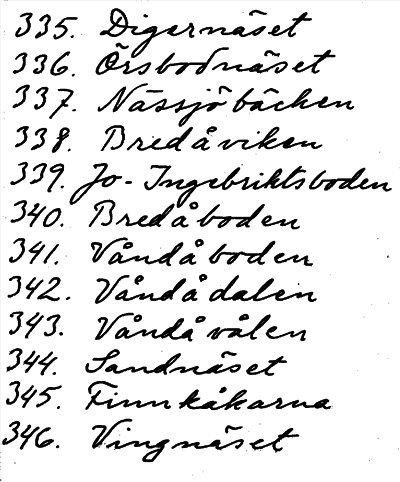 335. Digernäset
336. Örsbodnäset
337. Nässjöbäcken
338. Bredåviken
339. Jo-Ingebriktsboden
340. Bredåboden
341. Våndåboden
342. Våndådalen
343. Våndåvålen
344. Sandnäset
345. Finnkåkarna
346. Vingnäset